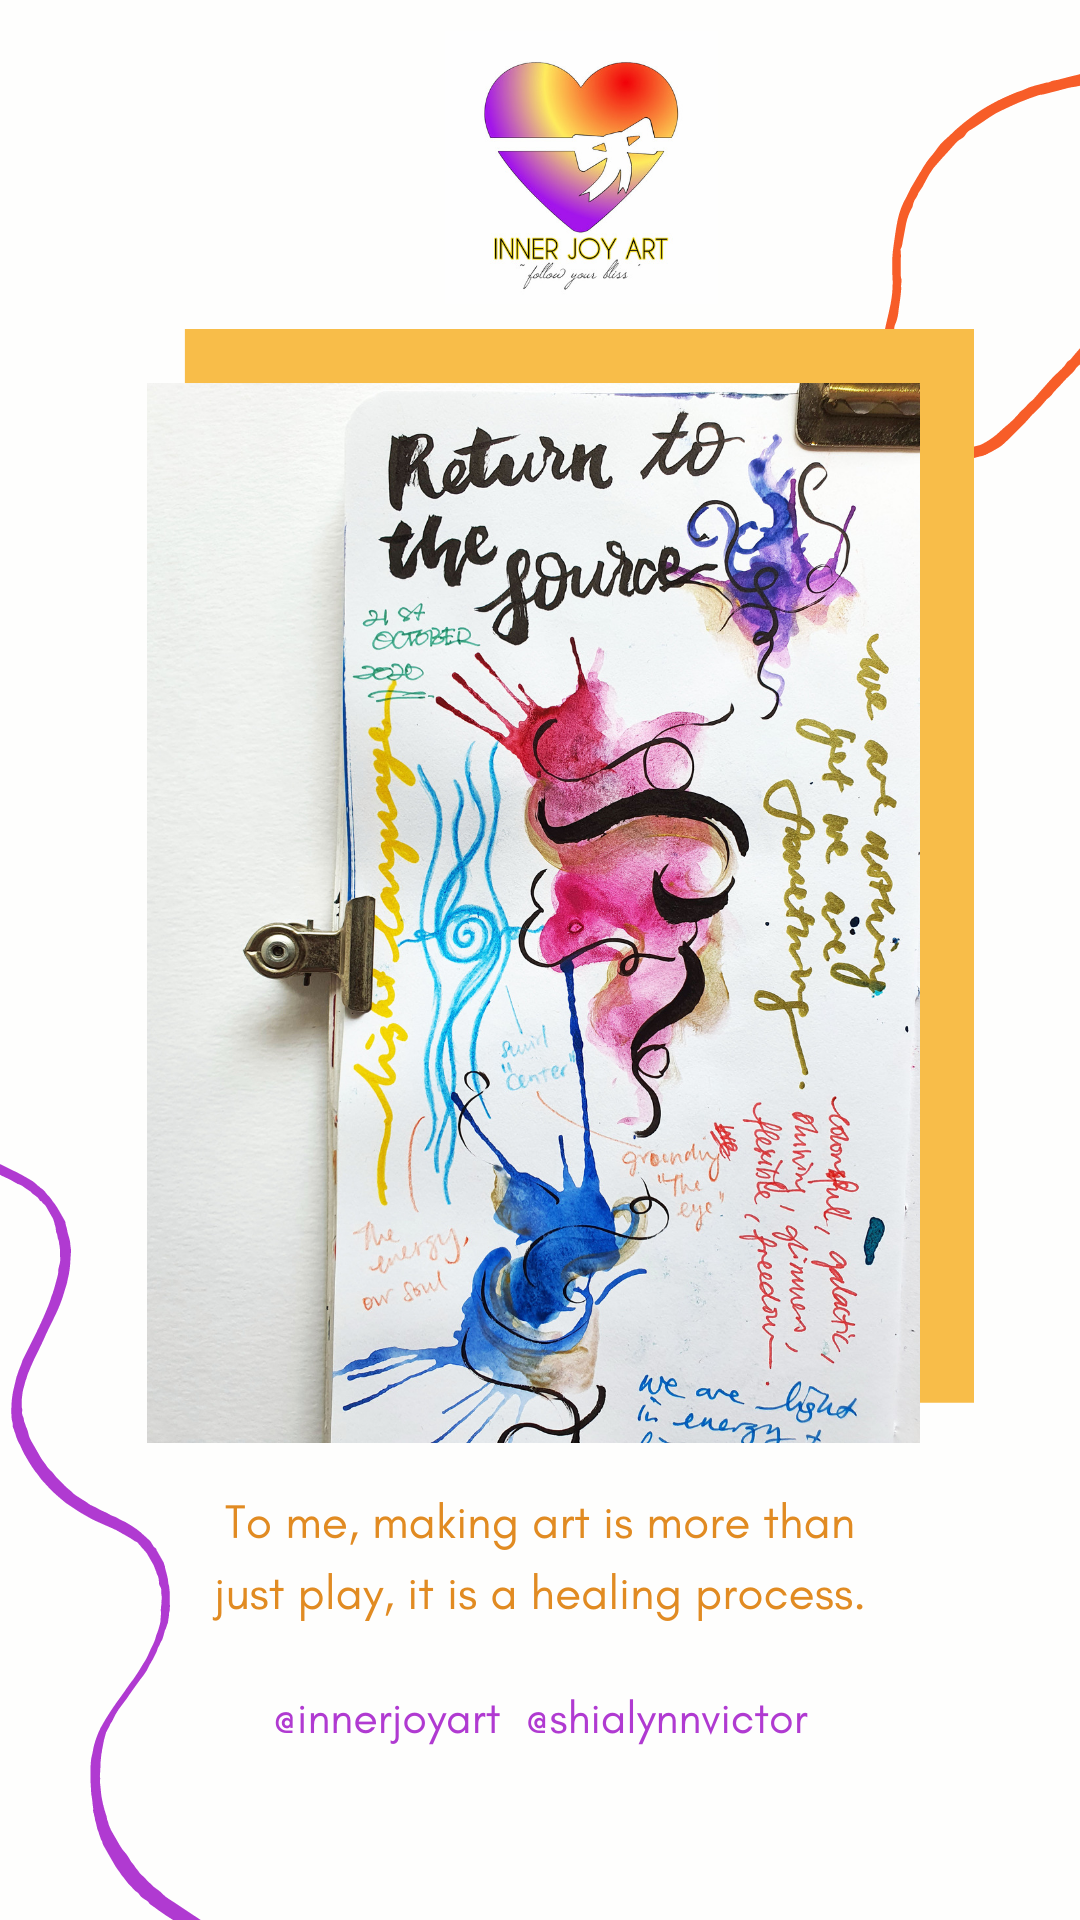 INNER JOY ART
"follow your bliss"
Return to
the source
21st
OCTOBER
2020
light language
we are nothing
yet we are
something.
swirl
"center"
grounding
"the
eye"
the
energy,
our soul
colourful, galactic,
shining, glimmers,
flexible, freedom.
we are light
in energy +
To me, making art is more than
just play, it is a healing process.
@innerjoyart @shialynnvictor